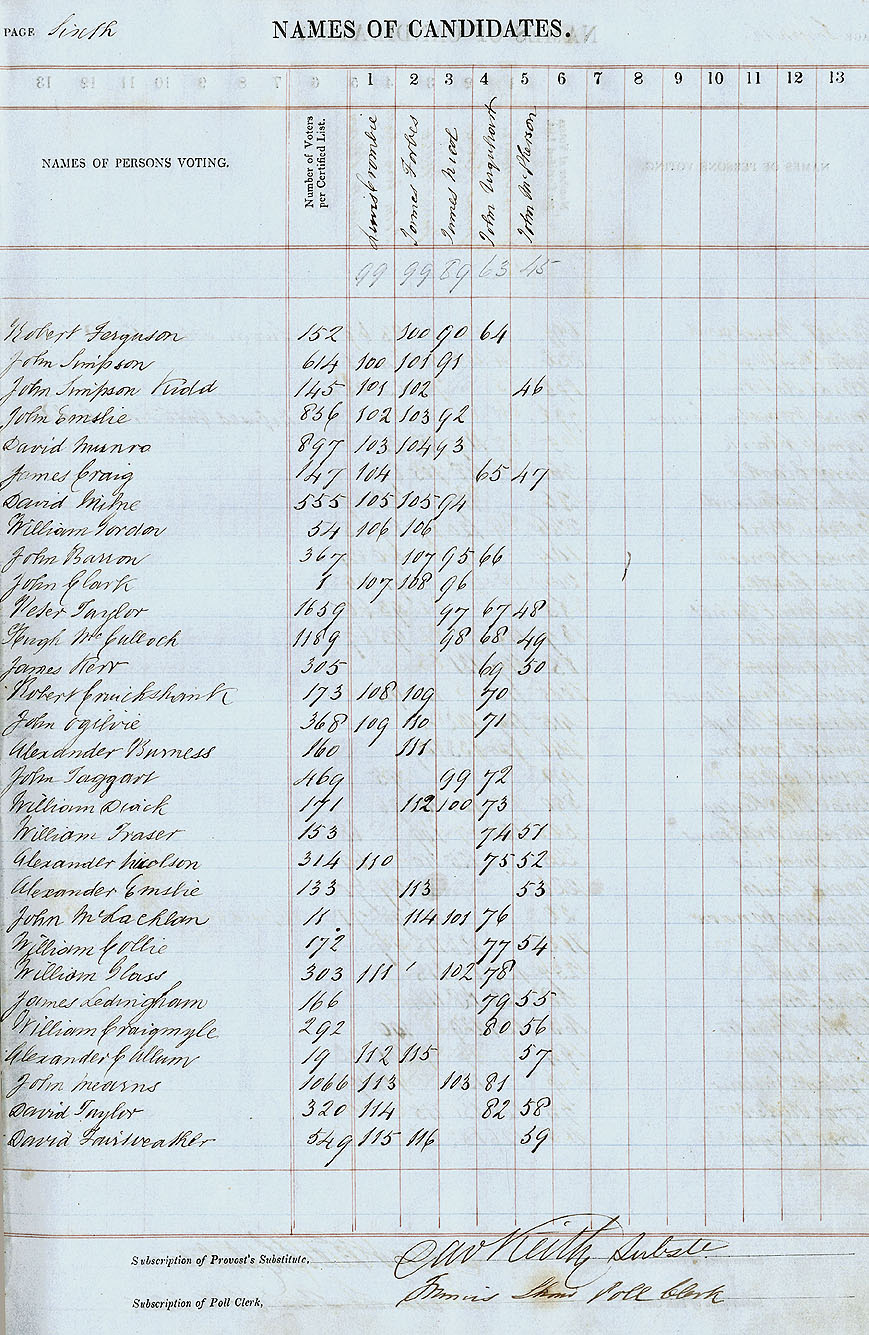 PAGE Sixth NAMES OF CANDIDATES.
1 2 3 4 5 6 7 8 9 10 11 12 13
NAMES OF PERSONS VOTING. Number of Voters per Certified List. Lewis Crombie James Forbes James Nicol John Urquhart John McPherson
99 99 89 63 45
Robert Ferguson 152 100 90 64
John Simpson 614 100 101 91
John Simpson Kidd 145 101 102 46
John Emslie 856 102 103 92
David Munro 897 103 104 93
James Craig 147 104 65 47
David Milne 555 105 105 94
William Gordon 54 106 106
John Barron 367 107 95 66
John Clark 1 107 108 96
Peter Taylor 1659 97 67 48
Hugh McCulloch 1189 98 68 49
James Kerr 305 69 50
Robert Cruickshank 173 108 109 70
John Ogilvie 368 109 110 71
Alexander Burness 160 111
John Taggart 469 99 72
William Diack 171 112 100 73
William Fraser 153 74 51
Alexander Nicolson 314 110 75 52
Alexander Emslie 133 113 53
John McLachlan 11 114 101 76
William Collie 172 77 54
William Glass 303 111 102 78
James Ledingham 166 79 55
William Craigmyle 292 80 56
Alexander Callum 19 112 115 57
John Mearns 1066 113 103 81
David Taylor 320 114 82 58
David Fairweather 549 115 116 59
Subscription of Provost's Substitute, Dav Keith Subste.
Subscription of Poll Clerk, Francis Poll Clerk